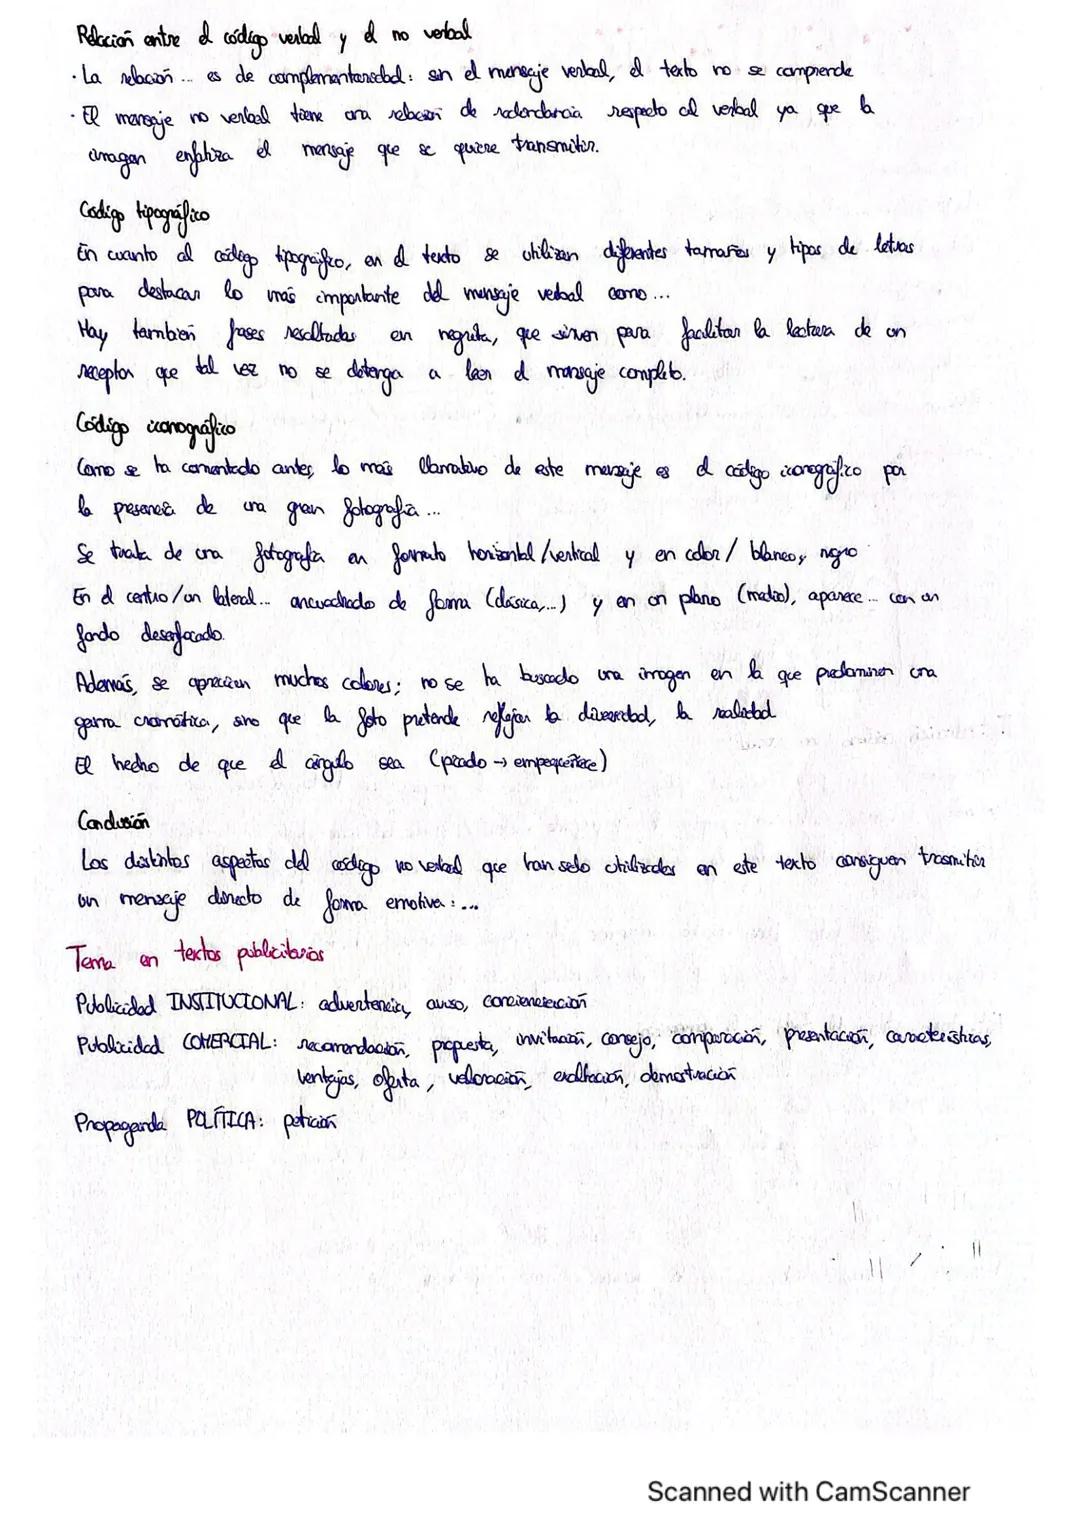 Relación entre el código verbal y el no verbal
· La relación ... es de complementariedad: sin el mensaje verbal, el texto no se comprende
· El mensaje no verbal tiene una relación de redundancia respecto al verbal ya que la
imagen enfatiza el mensaje que se quiere transmitir.
Código tipográfico
En cuanto al código tipográfico, en el texto se utilizan diferentes tamaños y tipos de letras
para destacar lo más importante del mensaje verbal como ...
Hay también frases resaltadas en negrita, que sirven para facilitar la lectura de un
receptor que tal vez no se detenga a leer el mensaje completo.
Código iconográfico
Como se ha comentado antes, lo más llamativo de este mensaje es el código iconográfico por
la presencia de una gran fotografía ...
Se trata de una fotografía en formato horizontal/vertical y en color/ blanco y negro
En el centro/un lateral... encuadrado de forma (clásica,...) y en un plano (medio), aparece ... con un
fondo desenfocado.
Además, se aprecian muchos colores; no se ha buscado una imagen en la que predominen una
gama cromática, sino que la foto pretende reflejar la diversidad, la realidad
El hecho de que el ángulo sea (picado → empequeñece)
Conclusión
Los distintos aspectos del código no verbal que han sido utilizados en este texto consiguen trasmitir
un mensaje directo de forma emotiva: ...
Tema en textos publicitarios
Publicidad INSTITUCIONAL: advertencia, aviso, concienciación
Publicidad COMERCIAL: recomendación, propuesta, invitación, consejo, comparación, presentación, características,
ventajas, oferta, valoración, exaltación, demostración
Propaganda POLÍTICA: petición
Scanned with CamScanner